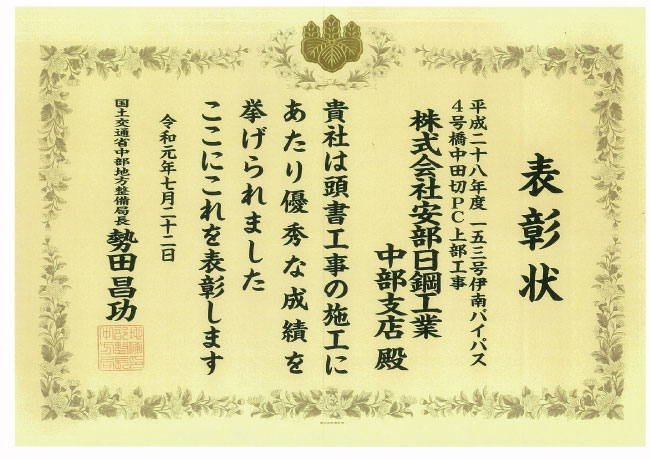 表彰状
平成二十八年度 一五三号伊南バイパス
4号橋中田切PC上部工事
株式会社安部日鋼工業
中部支店 殿
貴社は頭書工事の施工に
あたり優秀な成績を
挙げられました
ここにこれを表彰します
令和元年七月二十二日
国土交通省中部地方整備局長 勢田昌功